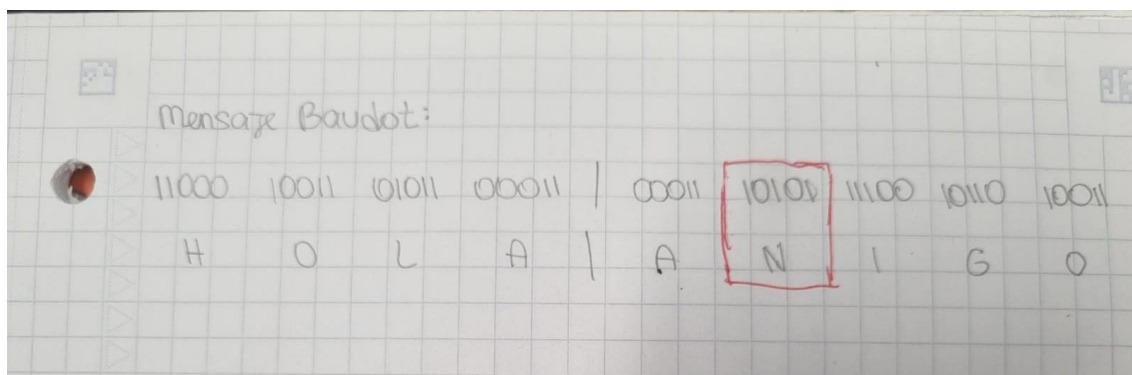 Mensaje Baudot:
11000 10011 101011 00011 | 00011 10101 11100 10110 10011
H O L A | A N I G O